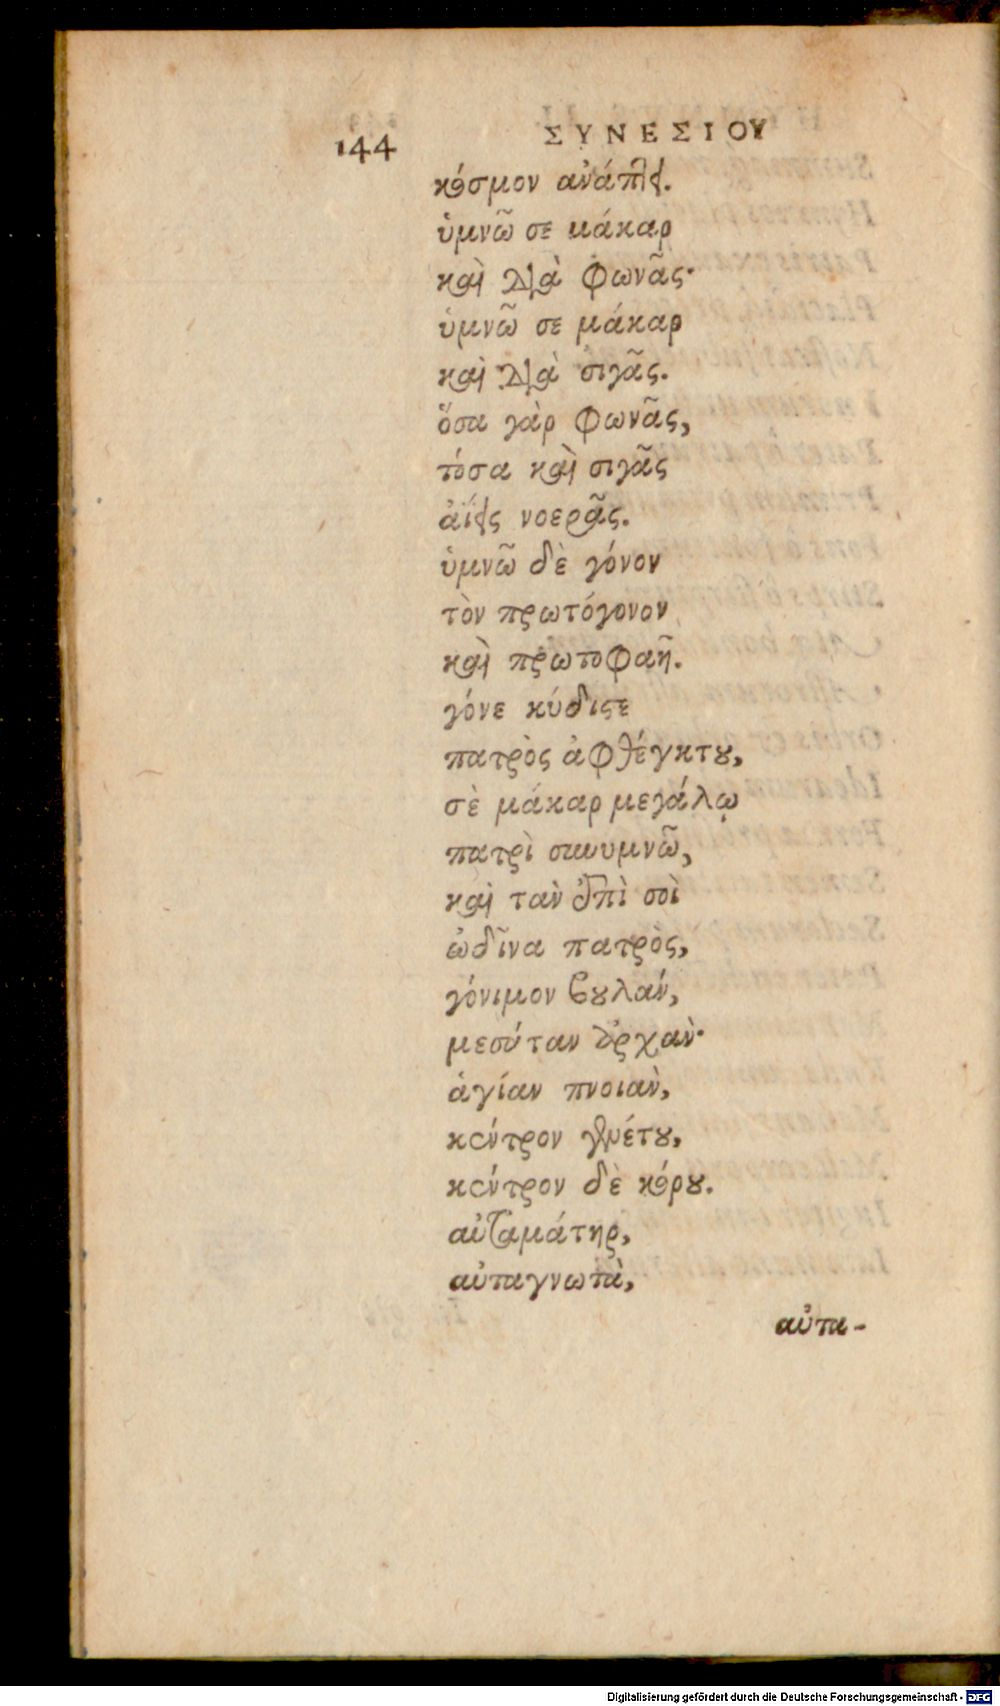 144 ΣΥΝΕΣΙΟΥ
κόσμον ἀνάπλεις.
ὑμνῶ σε μάκαρ
καὶ διὰ φωνᾶς·
ὑμνῶ σε μάκαρ
καὶ διὰ σιγᾶς.
ὅσα γὰρ φωνᾶς,
τόσα καὶ σιγᾶς
ἀΐεις νοερᾶς.
ὑμνῶ δὲ γόνον
τὸν πρωτόγονον
καὶ πρωτοφαῆ.
γόνε κύδιϛε
πατρὸς ἀφθέγκτȣ,
σὲ μάκαρ μεγάλῳ
πατρὶ συνυμνῶ,
καὶ τὰν ἐπὶ σοὶ
ὠδῖνα πατρὸς,
γόνιμον βȣλάν,
μεσάταν ἀρχὰν·
ἁγίαν πνοιὰν,
κέντρον γενέτȣ,
κέντρον δὲ κόρȣ.
αὐταμάτηρ,
αὐταγνωτὰ,
αὐτα-
Digitalisierung gefördert durch die Deutsche Forschungsgemeinschaft - DFG